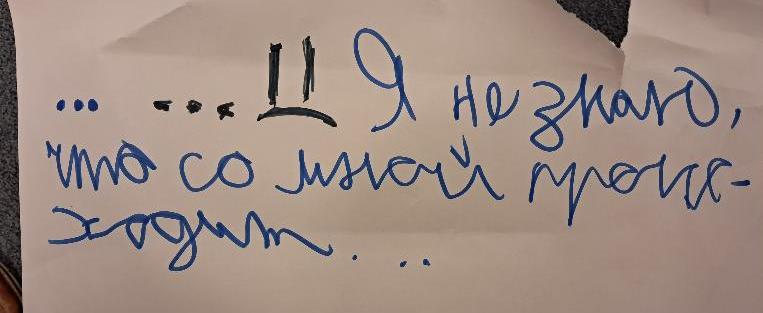 ... ... Я не знаю,
что со мной проис-
ходит. ...